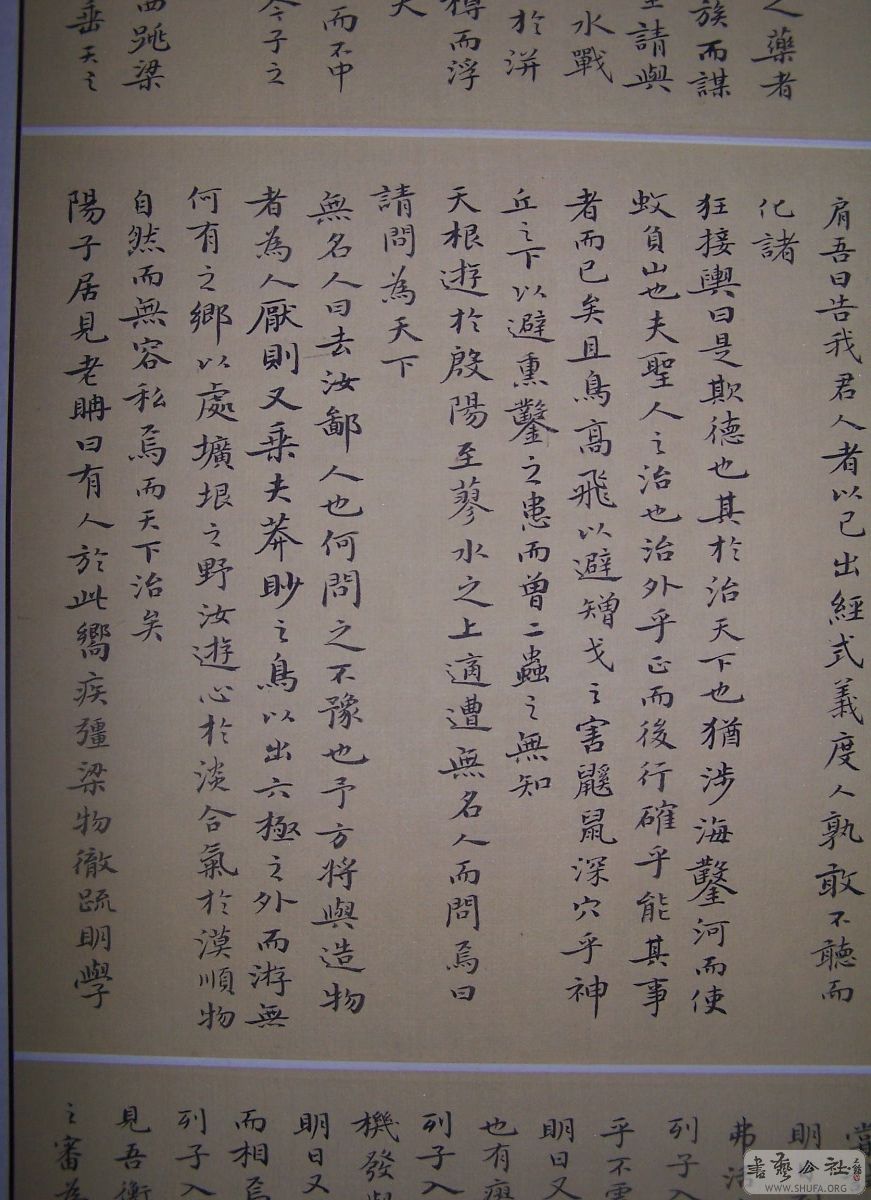 之藥者
族而謀
請與
水戰
於洴
樽而浮
天
而不中
今子之
西跳梁
垂天之
肩吾曰告我君人者以己出經式義度人孰敢不聽而
化諸
狂接輿曰是欺德也其於治天下也猶涉海鑿河而使
蚊負山也夫聖人之治也治外乎正而後行確乎能其事
者而已矣且鳥高飛以避矰弋之害鼷鼠深穴乎神
丘之下以避熏鑿之患而曾二蟲之無知
天根遊於殷陽至蓼水之上適遭無名人而問焉曰
請問為天下
無名人曰去汝鄙人也何問之不豫也予方將與造物
者為人厭則又乘夫莽眇之鳥以出六極之外而游無
何有之鄉以處壙垠之野汝遊心於淡合氣於漠順物
自然而無容私焉而天下治矣
陽子居見老聃曰有人於此嚮疾彊梁物徹疏明學
明
弗活
列子
乎不
明日又
也有
列子入
機發
明日又
而相焉
列子入
見吾衡
之審為
書藝公社
WWW.SHUFA.ORG